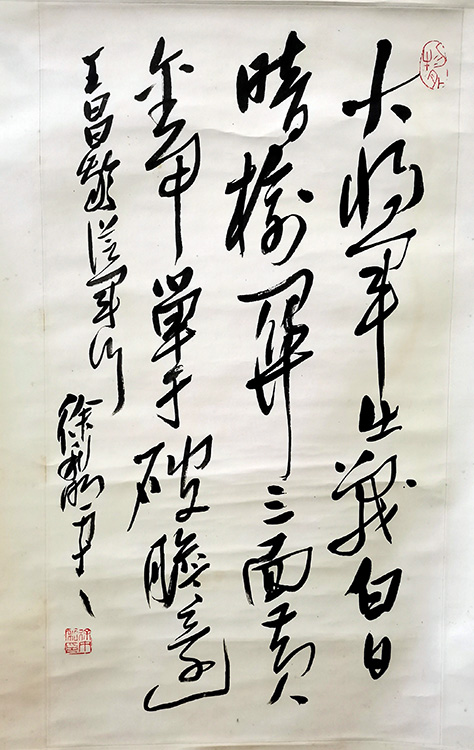 大將軍出戰白日
暗榆關三面黃
金甲單于破膽還
王昌齡從軍行
徐利明